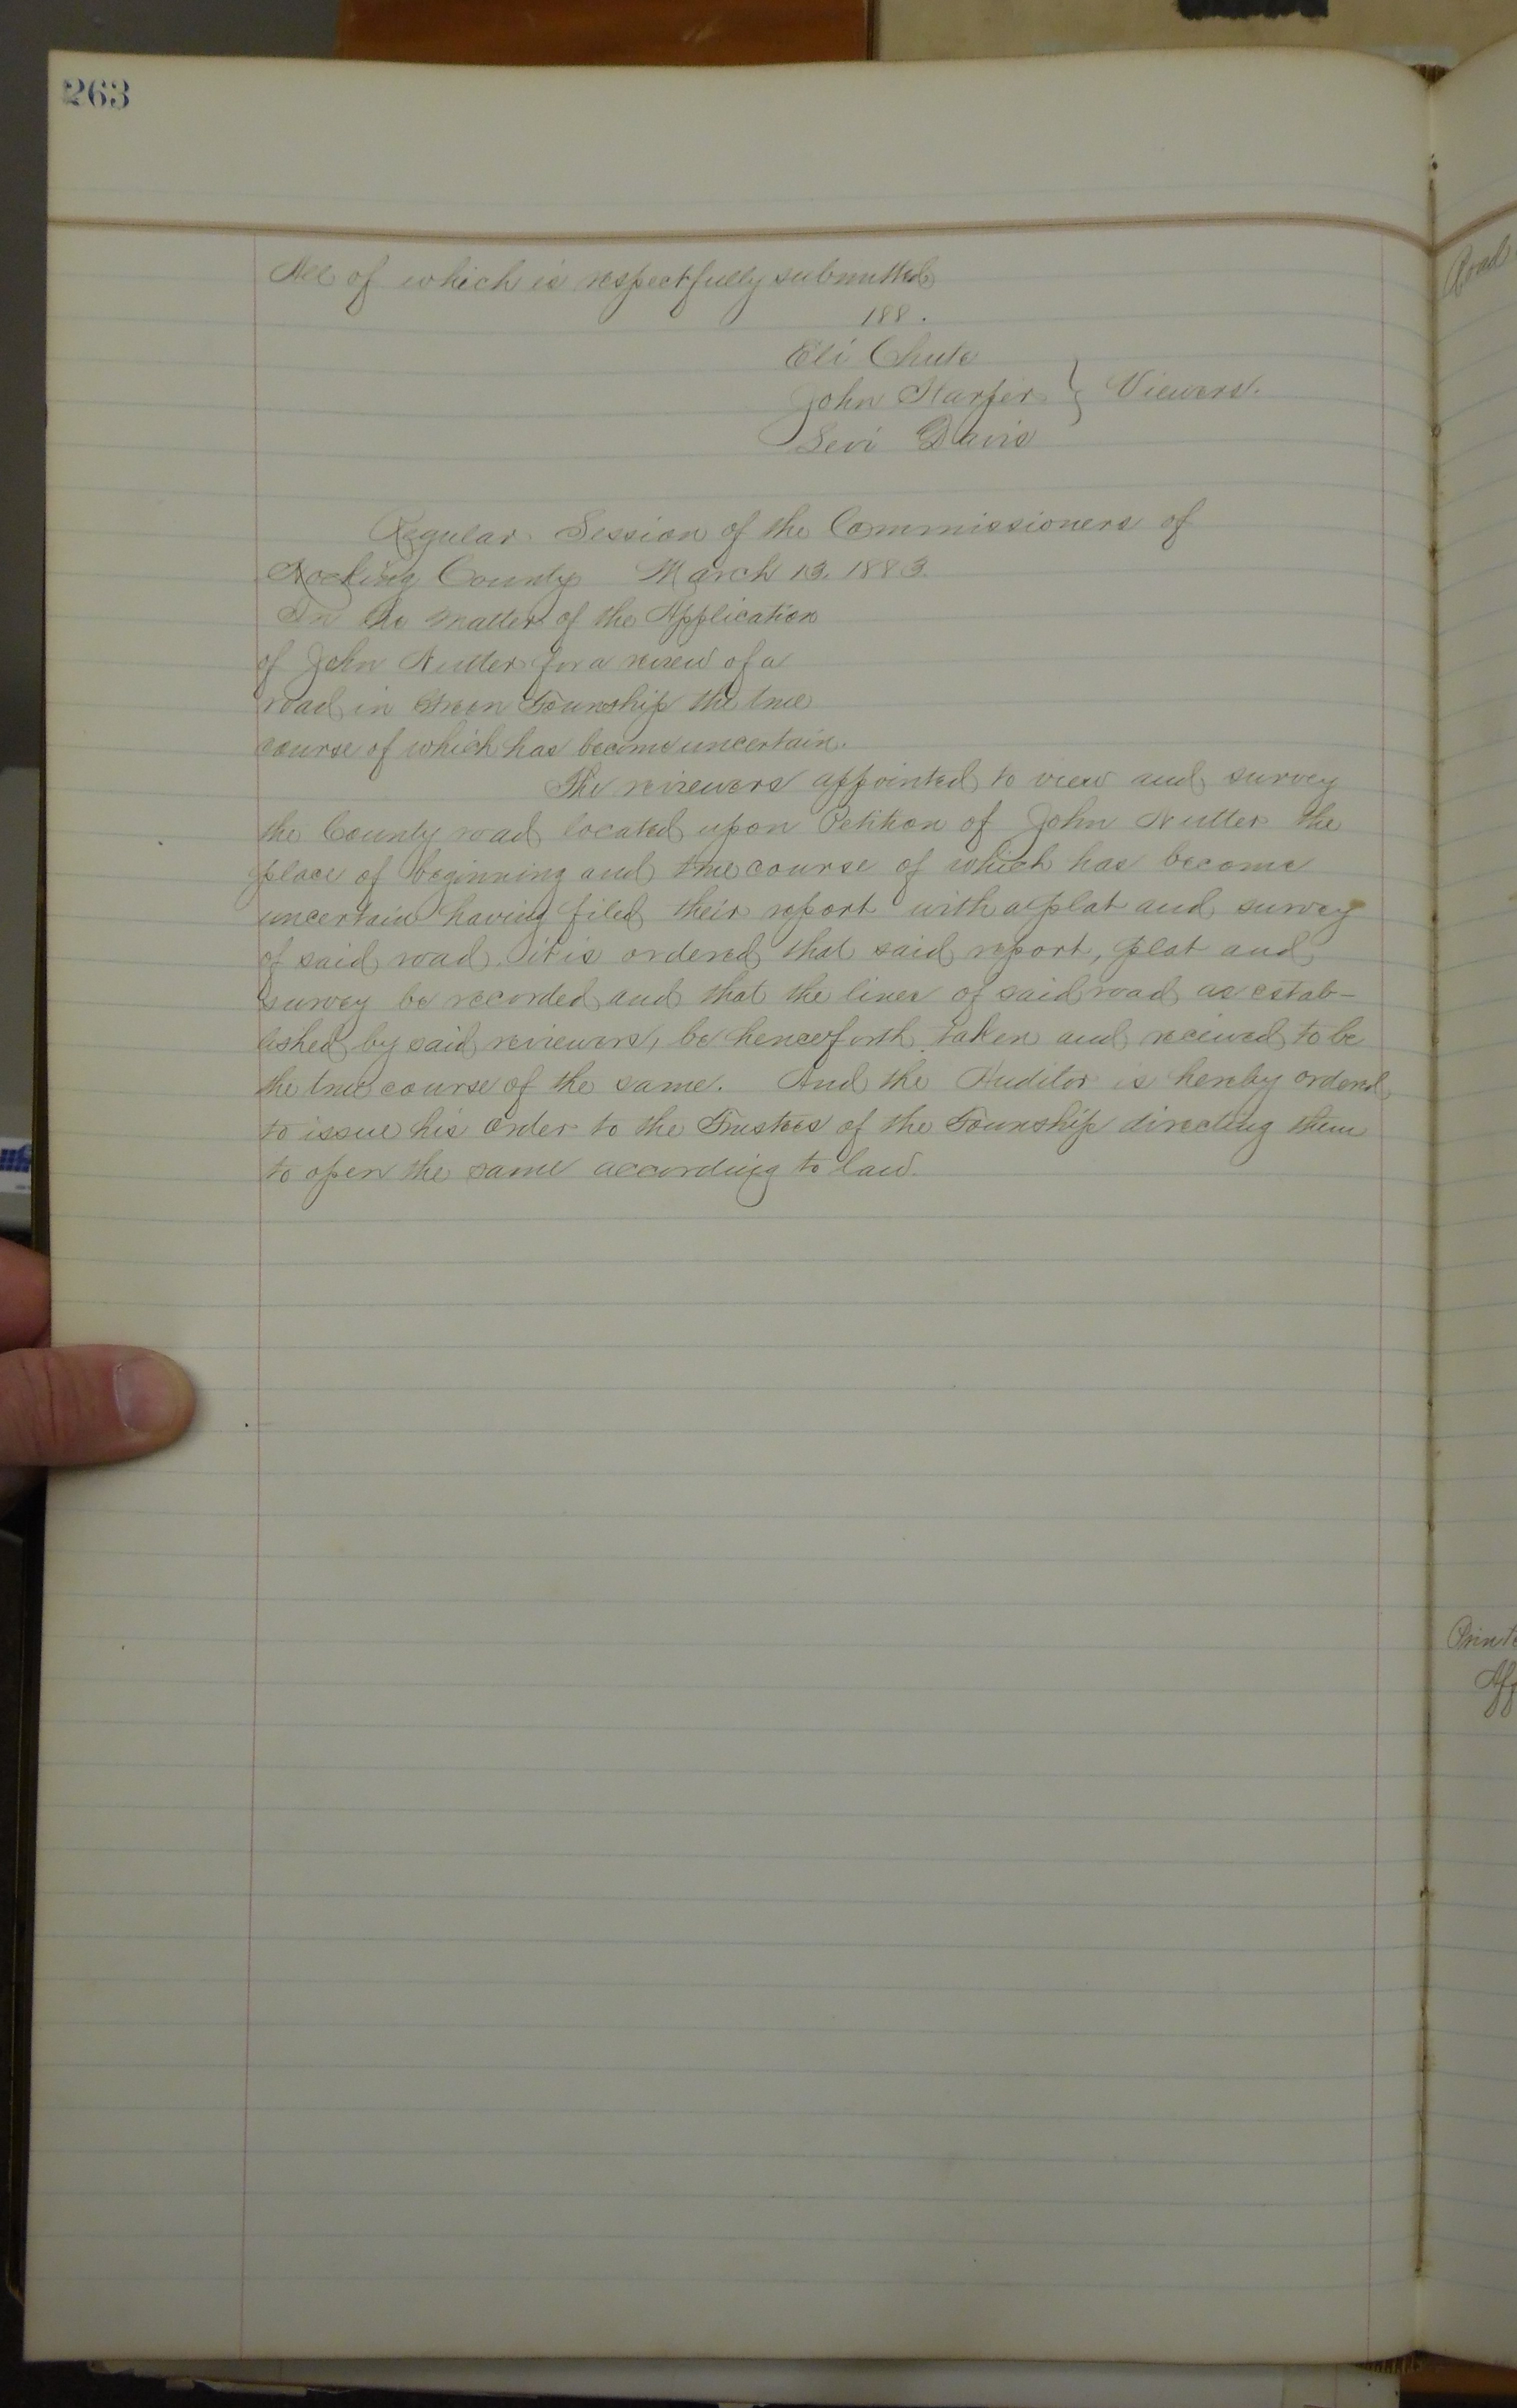 263
All of which is respectfully submitted
188 .
Eli Chute
John Harper } Viewers.
Levi Davis
Regular Session of the Commissioners of
Hocking County March 13. 1883.
In the matter of the Application
of John Nutter for a review of a
road in Green Township the true
course of which has become uncertain.
The reviewers appointed to view and survey
the County road located upon Petition of John Nutter the
place of beginning and true course of which has become
uncertain having filed their report with a plat and survey
of said road, it is ordered that said report, plat and
survey be recorded and that the lines of said road as estab-
lished by said reviewers, be henceforth taken and received to be
the true course of the same. And the Auditor is hereby ordered
to issue his order to the Trustees of the Township directing them
to open the same according to law.
Road